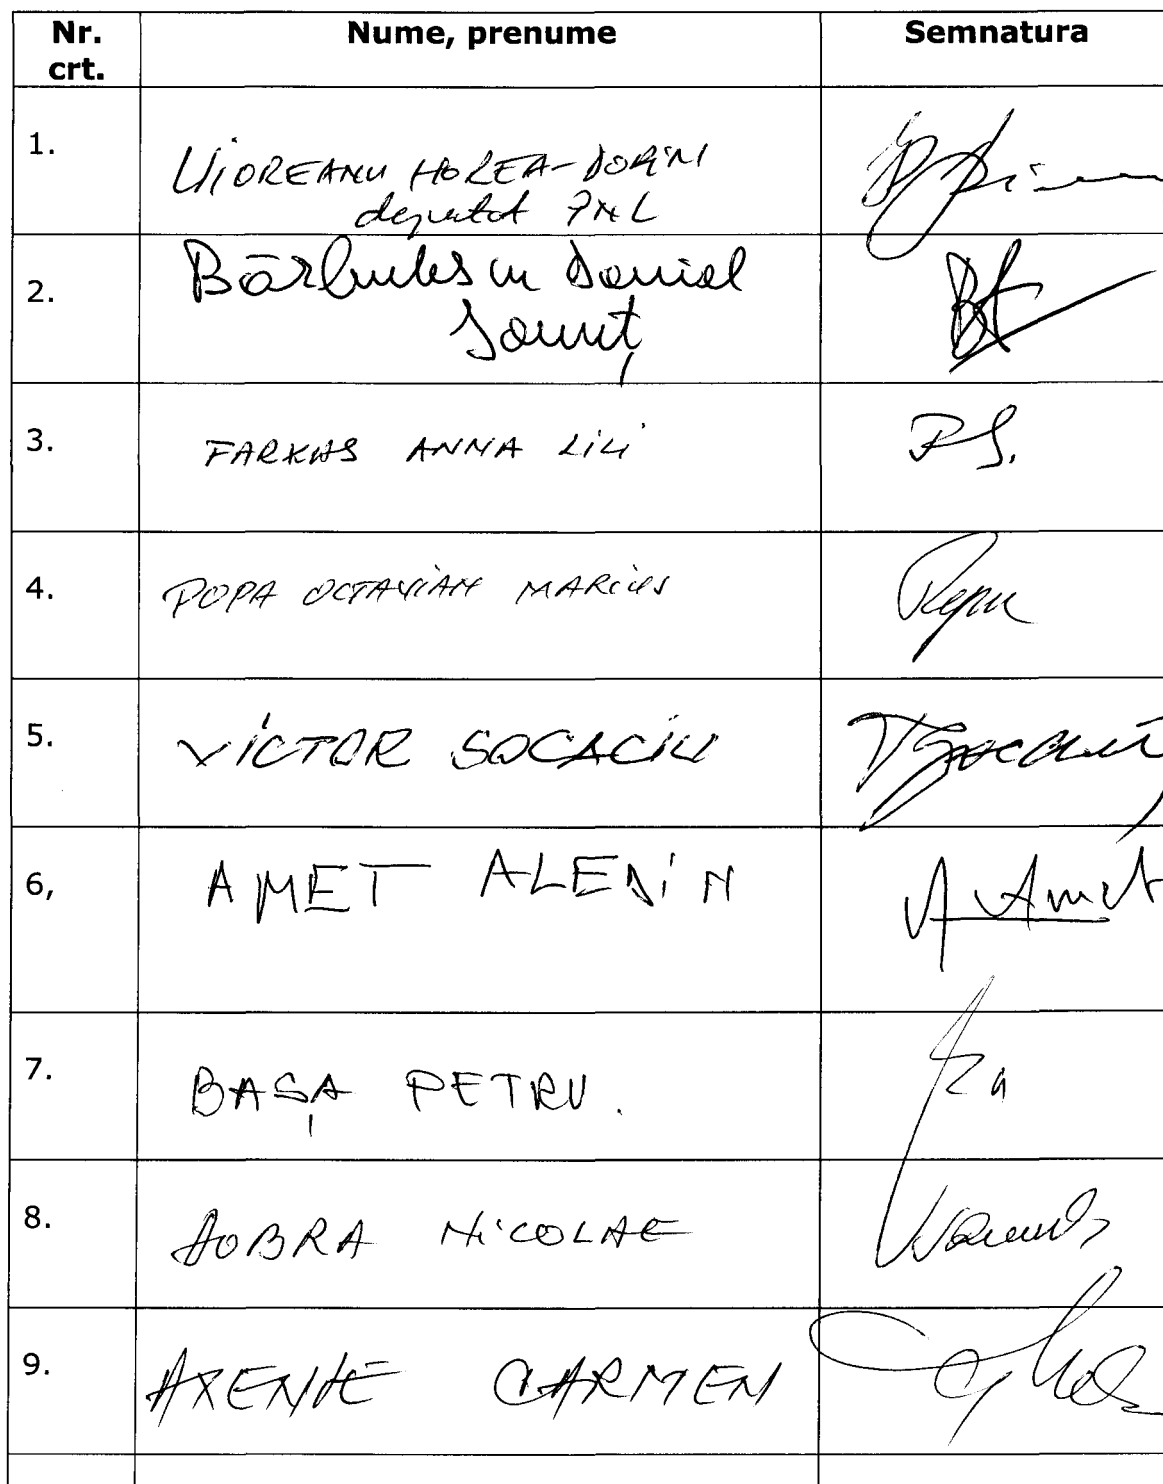 Nr. crt. Nume, prenume Semnatura
1. UIOREANU HOREA-DORIN
deputat PNL
2. Bărbulescu Daniel
Ionuț
3. FARKAS ANNA LILI
4. POPA OCTAVIAN MARIUS
5. VICTOR SOCACIU VSocaciu
6, AMET ALEDIN A Amet
7. BAȘA PETRU.
8. DOBRA NICOLAE
9. AXENTE CARMEN